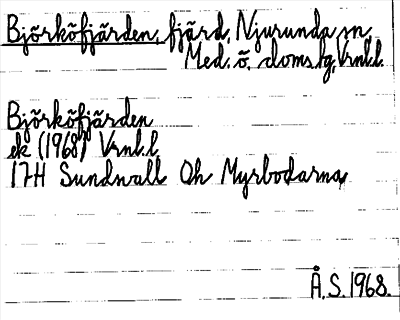 Björköfjärden, fjärd, Njurunda sn,
Med. ö. doms.tg, Vrnl.l.
Björköfjärden
ek (1968) Vrnl.l
17H Sundsvall Öh Myrbodarna
Å.S. 1968.